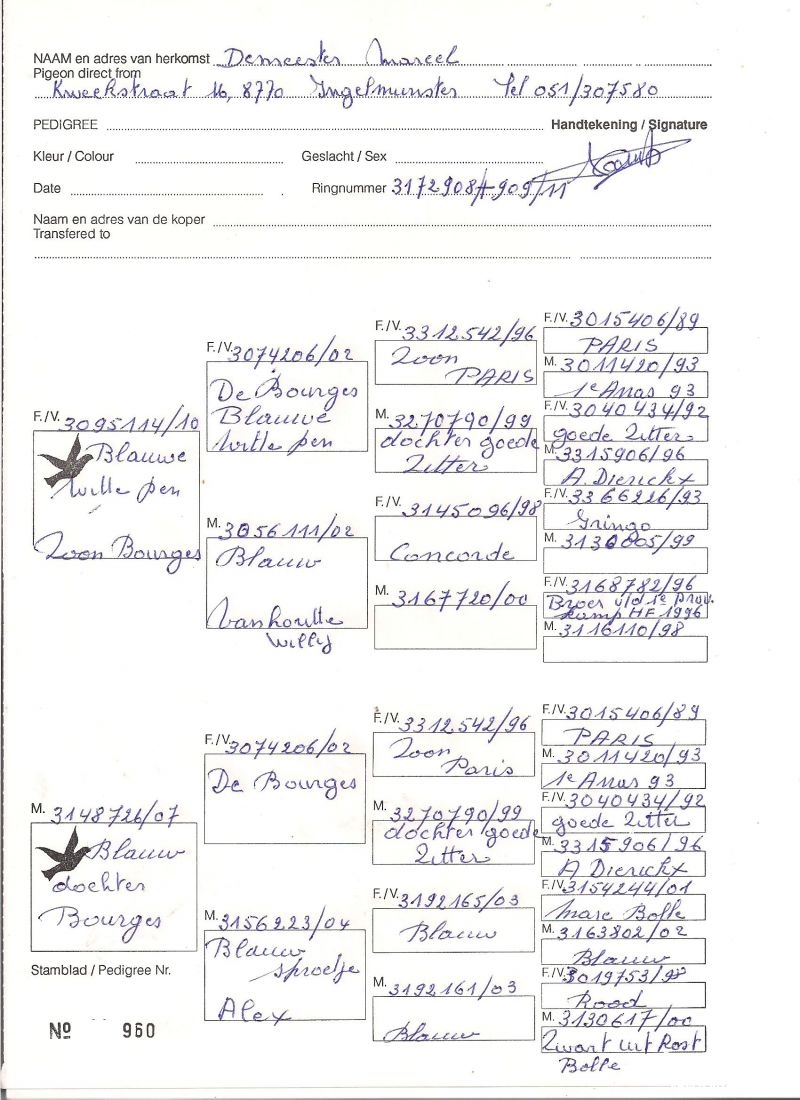 NAAM en adres van herkomst Demeester Marcel
Pigeon direct from
Kweekstraat 16, 8770 Ingelmunster Tel 051/307580
PEDIGREE Handtekening / Signature
Kleur / Colour Geslacht / Sex
Date Ringnummer 3172908 + 909/11
Naam en adres van de koper
Transfered to
F./V. 3095114/10
Blauwe
witte pen
Zoon Bourges
F./V. 3074206/02
De Bourges
Blauwe
witte pen
M. 3056111/02
Blauw
Vanhoutte
Willy
F./V. 3312542/96
Zoon
PARIS
M. 3270790/99
dochter goede
Zitter
F./V. 3145096/98
Concorde
M. 3167720/00
F./V. 3015406/89
PARIS
M. 3011420/93
1e Arras 93
F./V. 3040434/92
goede Zitter
M. 3315906/96
A. Dierickx
F./V. 3366226/93
Gringo
M. 3130005/99
F./V. 3168782/96
Broer v/d 1e prov.
kamp HF 1996
M. 3116110/98
M. 3148726/07
Blauw
dochter
Bourges
F./V. 3074206/02
De Bourges
M. 3156223/04
Blauw
sproetje
Alex
F./V. 3312542/96
Zoon
Paris
M. 3270790/99
dochter goede
Zitter
F./V. 3192165/03
Blauw
M. 3192161/03
Blauw
F./V. 3015406/89
PARIS
M. 3011420/93
1e Arras 93
F./V. 3040434/92
goede Zitter
M. 3315906/96
A Dierickx
F./V. 3154244/01
Marc Bolle
M. 3163802/02
Blauw
F./V. 3019753/98
Rood
M. 3130617/00
Zwart uit Rost
Bolle
Stamblad / Pedigree Nr.
Nº 960